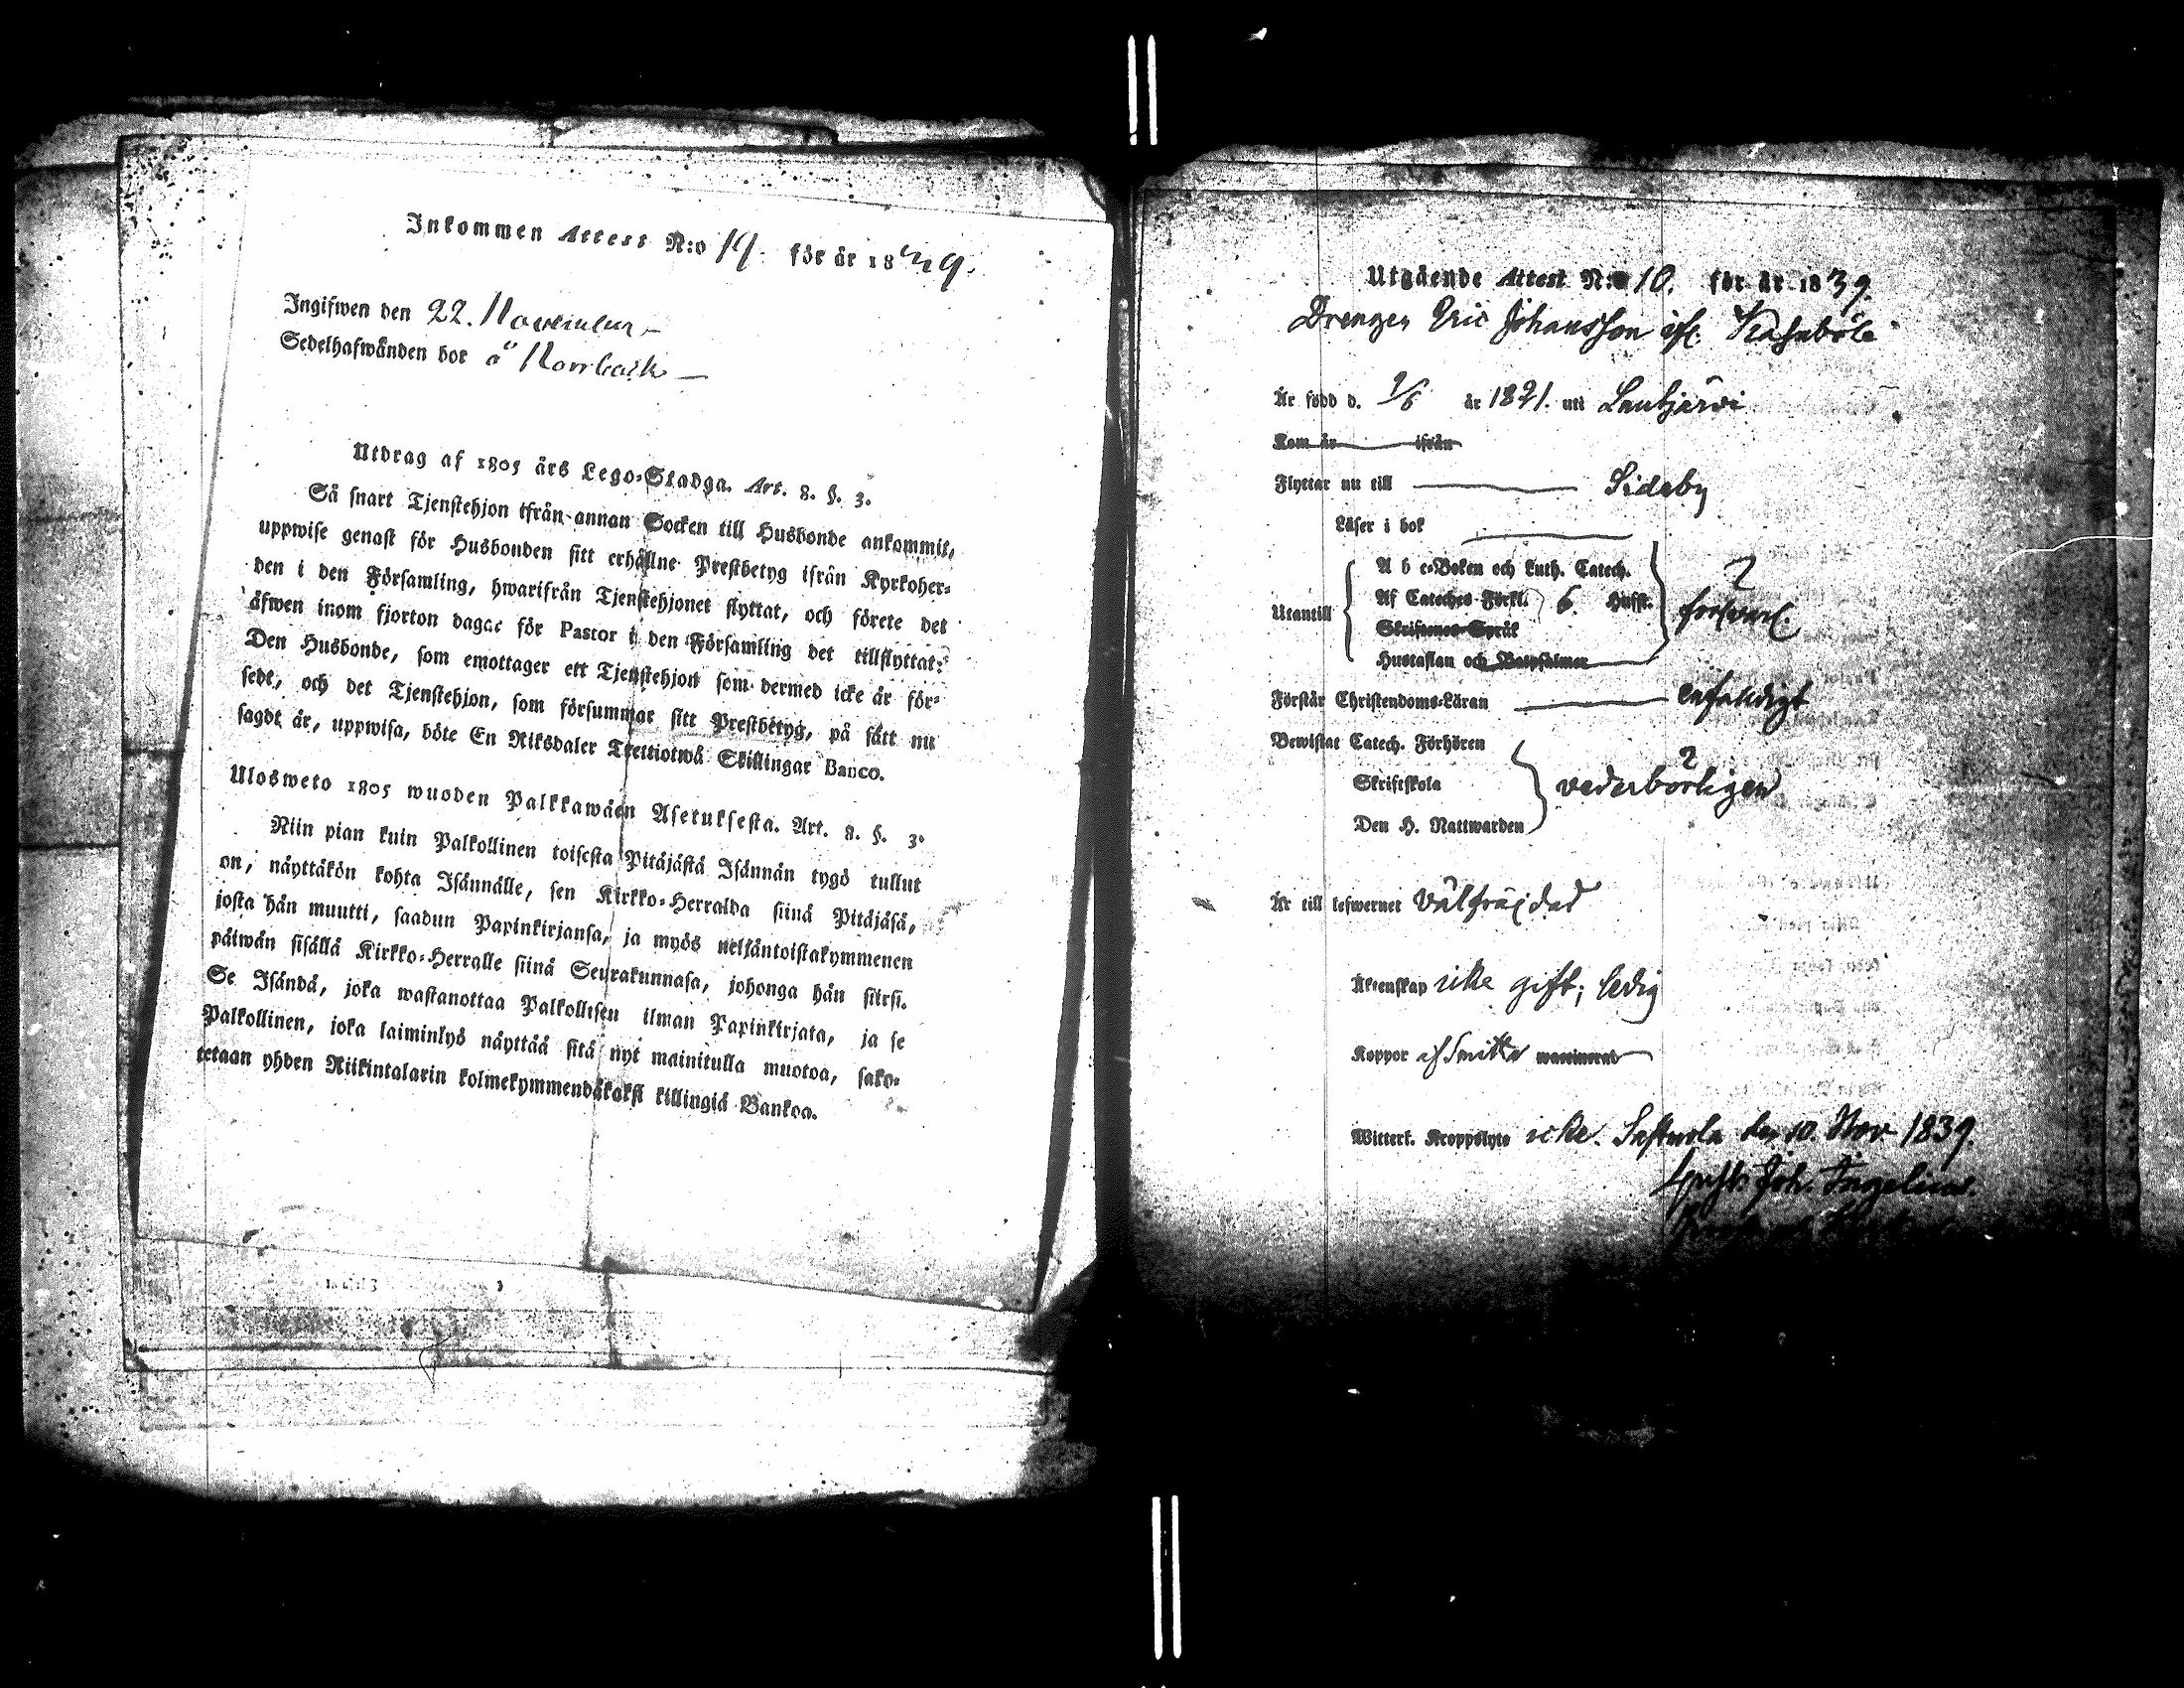 Inkommen Attest N:o 19. för år 1839.
Ingifwen den 22. November
Sedelhafwanden bor å Norrback
Utdrag af 1805 års Lego-Stadga. Art. 8. §. 3.
Så snart Tjenstehjon ifrån annan Socken till Husbonde ankommit,
uppwise genast för Husbonden sitt erhållne Prestbetyg ifrån Kyrkoher-
den i den Församling, hwarifrån Tjenstehjonet flyttat, och förete det
äfwen inom fjorton dagar för Pastor i den Församling det tillflyttat.
Den Husbonde, som emottager ett Tjenstehjon som dermed icke är för-
sedt, och det Tjenstehjon, som försummar sitt Prestbetyg, på sätt nu
sagdt är, uppwisa, böte En Riksdaler Trettiotwå Skillingar Banco.
Ulosweto 1805 wuoden Palkkawäen Asetuksesta. Art. 8. §. 3.
Niin pian kuin Palkollinen toisesta Pitäjästä Isännän tygö tullut
on, näyttäkön kohta Isännälle, sen Kirkko-Herralda siinä Pitäjäsä,
josta hän muutti, saadun Papinkirjansa, ja myös neljäntoistakymmenen
päiwän sisällä Kirkko-Herralle siinä Seurakunnasa, johonga hän siirsi.
Se Isändä, joka wastanottaa Palkollisen ilman Papinkirjata, ja se
Palkollinen, joka laiminlyö näyttää sitä nyt mainitulla muotoa, sako-
tetaan yhden Riikintalarin kolmekymmendäkaksi killingiä Bankoa.
Utgående Attest N:o 10. för år 1839.
Drengen Eric Johansson ifr. Kasaböle
Är född d. år 1821. uti Lautjärvi
Kom år ifrån
Flyttar nu till Sideby
Läser i bok
A b c-Boken och Luth. Catech.
Af Cateches Förkl. 6 Hufst.
Utantill försvarl.
Skriftenes Språk
Hustaflan och Botpsalmer
Förstår Christendoms-Läran enfaldigt
Bewistat Catech. Förhören
Skriftskola vederbörligen
Den H. Nattwarden
Är till lefwernet välfräjdad
Äktenskap icke gift; ledig
Koppor af Smitta waccinerad
Witterl. Kroppslyte icke. Sastmola den 10. Nov 1839.
Joh. Ingelius.